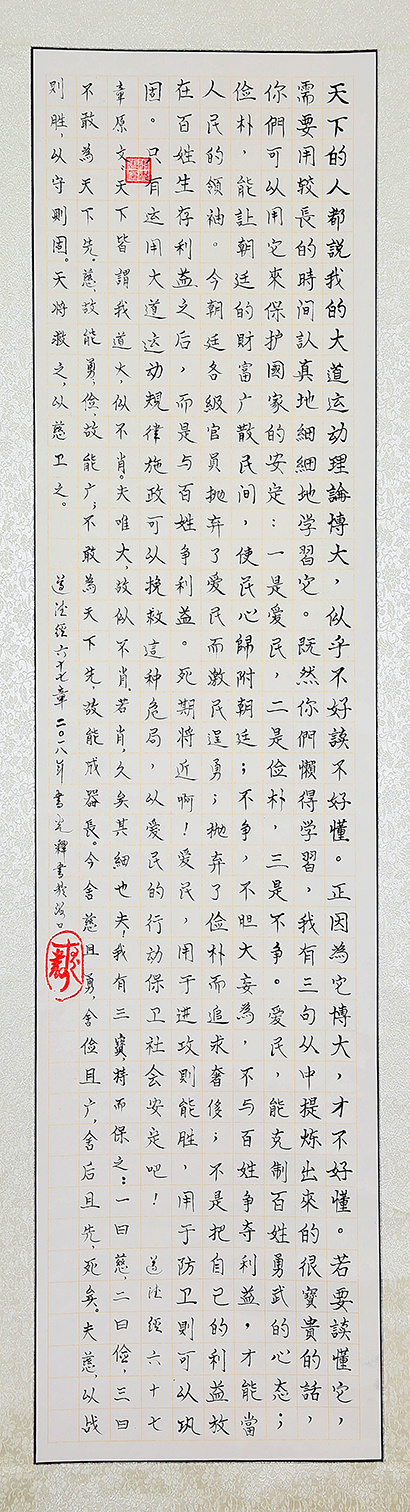 天下的人都説我的大道运动理論博大，似乎不好談不好懂。正因為它博大，才不好懂。若要談懂它，
需要用较長的時间认真地细细地学習它。既然你們懒得学習，我有三句从中提炼出來的很寳貴的話，
你們可以用它來保护國家的安定：一是爱民，二是俭朴，三是不争。爱民，能克制百姓勇武的心态；
俭朴，能让朝廷的財富广散民间，使民心歸附朝廷；不争，不胆大妄為，不与百姓争夺利益，才能當
人民的領袖。今朝廷各级官員抛弃了爱民而激民逞勇；抛弃了俭朴而追求奢侈；不是把自己的利益放
在百姓生存利益之后，而是与百姓争利益。死期将近啊！爱民，用于进攻则能胜，用于防卫则可以巩
固。只有运用大道运动规律施政可以挽救這种危局，以爱民的行动保卫社会安定吧！ 道德經六十七
章原文：天下皆謂我道大，似不肖。夫唯大，故似不肖。若肖，久矣其细也夫！我有三寳，持而保之：一曰慈，二曰俭，三曰
不敢為天下先。慈，故能勇，俭，故能广；不敢為天下先，故能成器長。今舍慈且勇，舍俭且广，舍后且先，死矣。夫慈，以战
则胜，以守则固。天将救之，以慈卫之。 道德經六十七章 二〇一八年